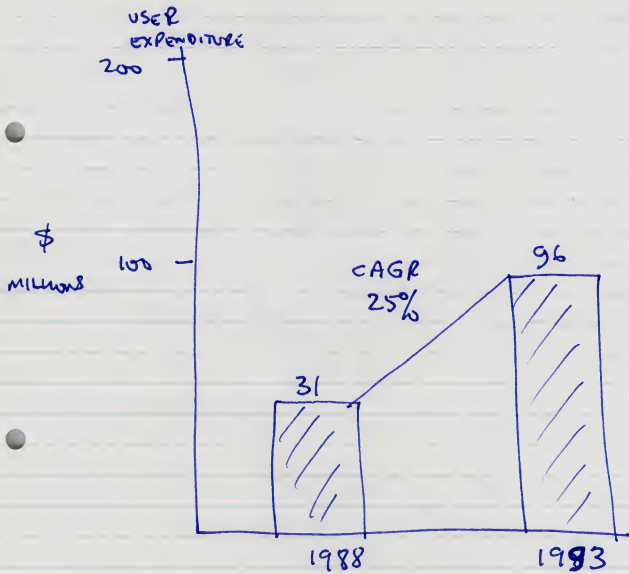 USER
EXPENDITURE
200
$
MILLIONS
100
CAGR
25%
96
31
1988
1993